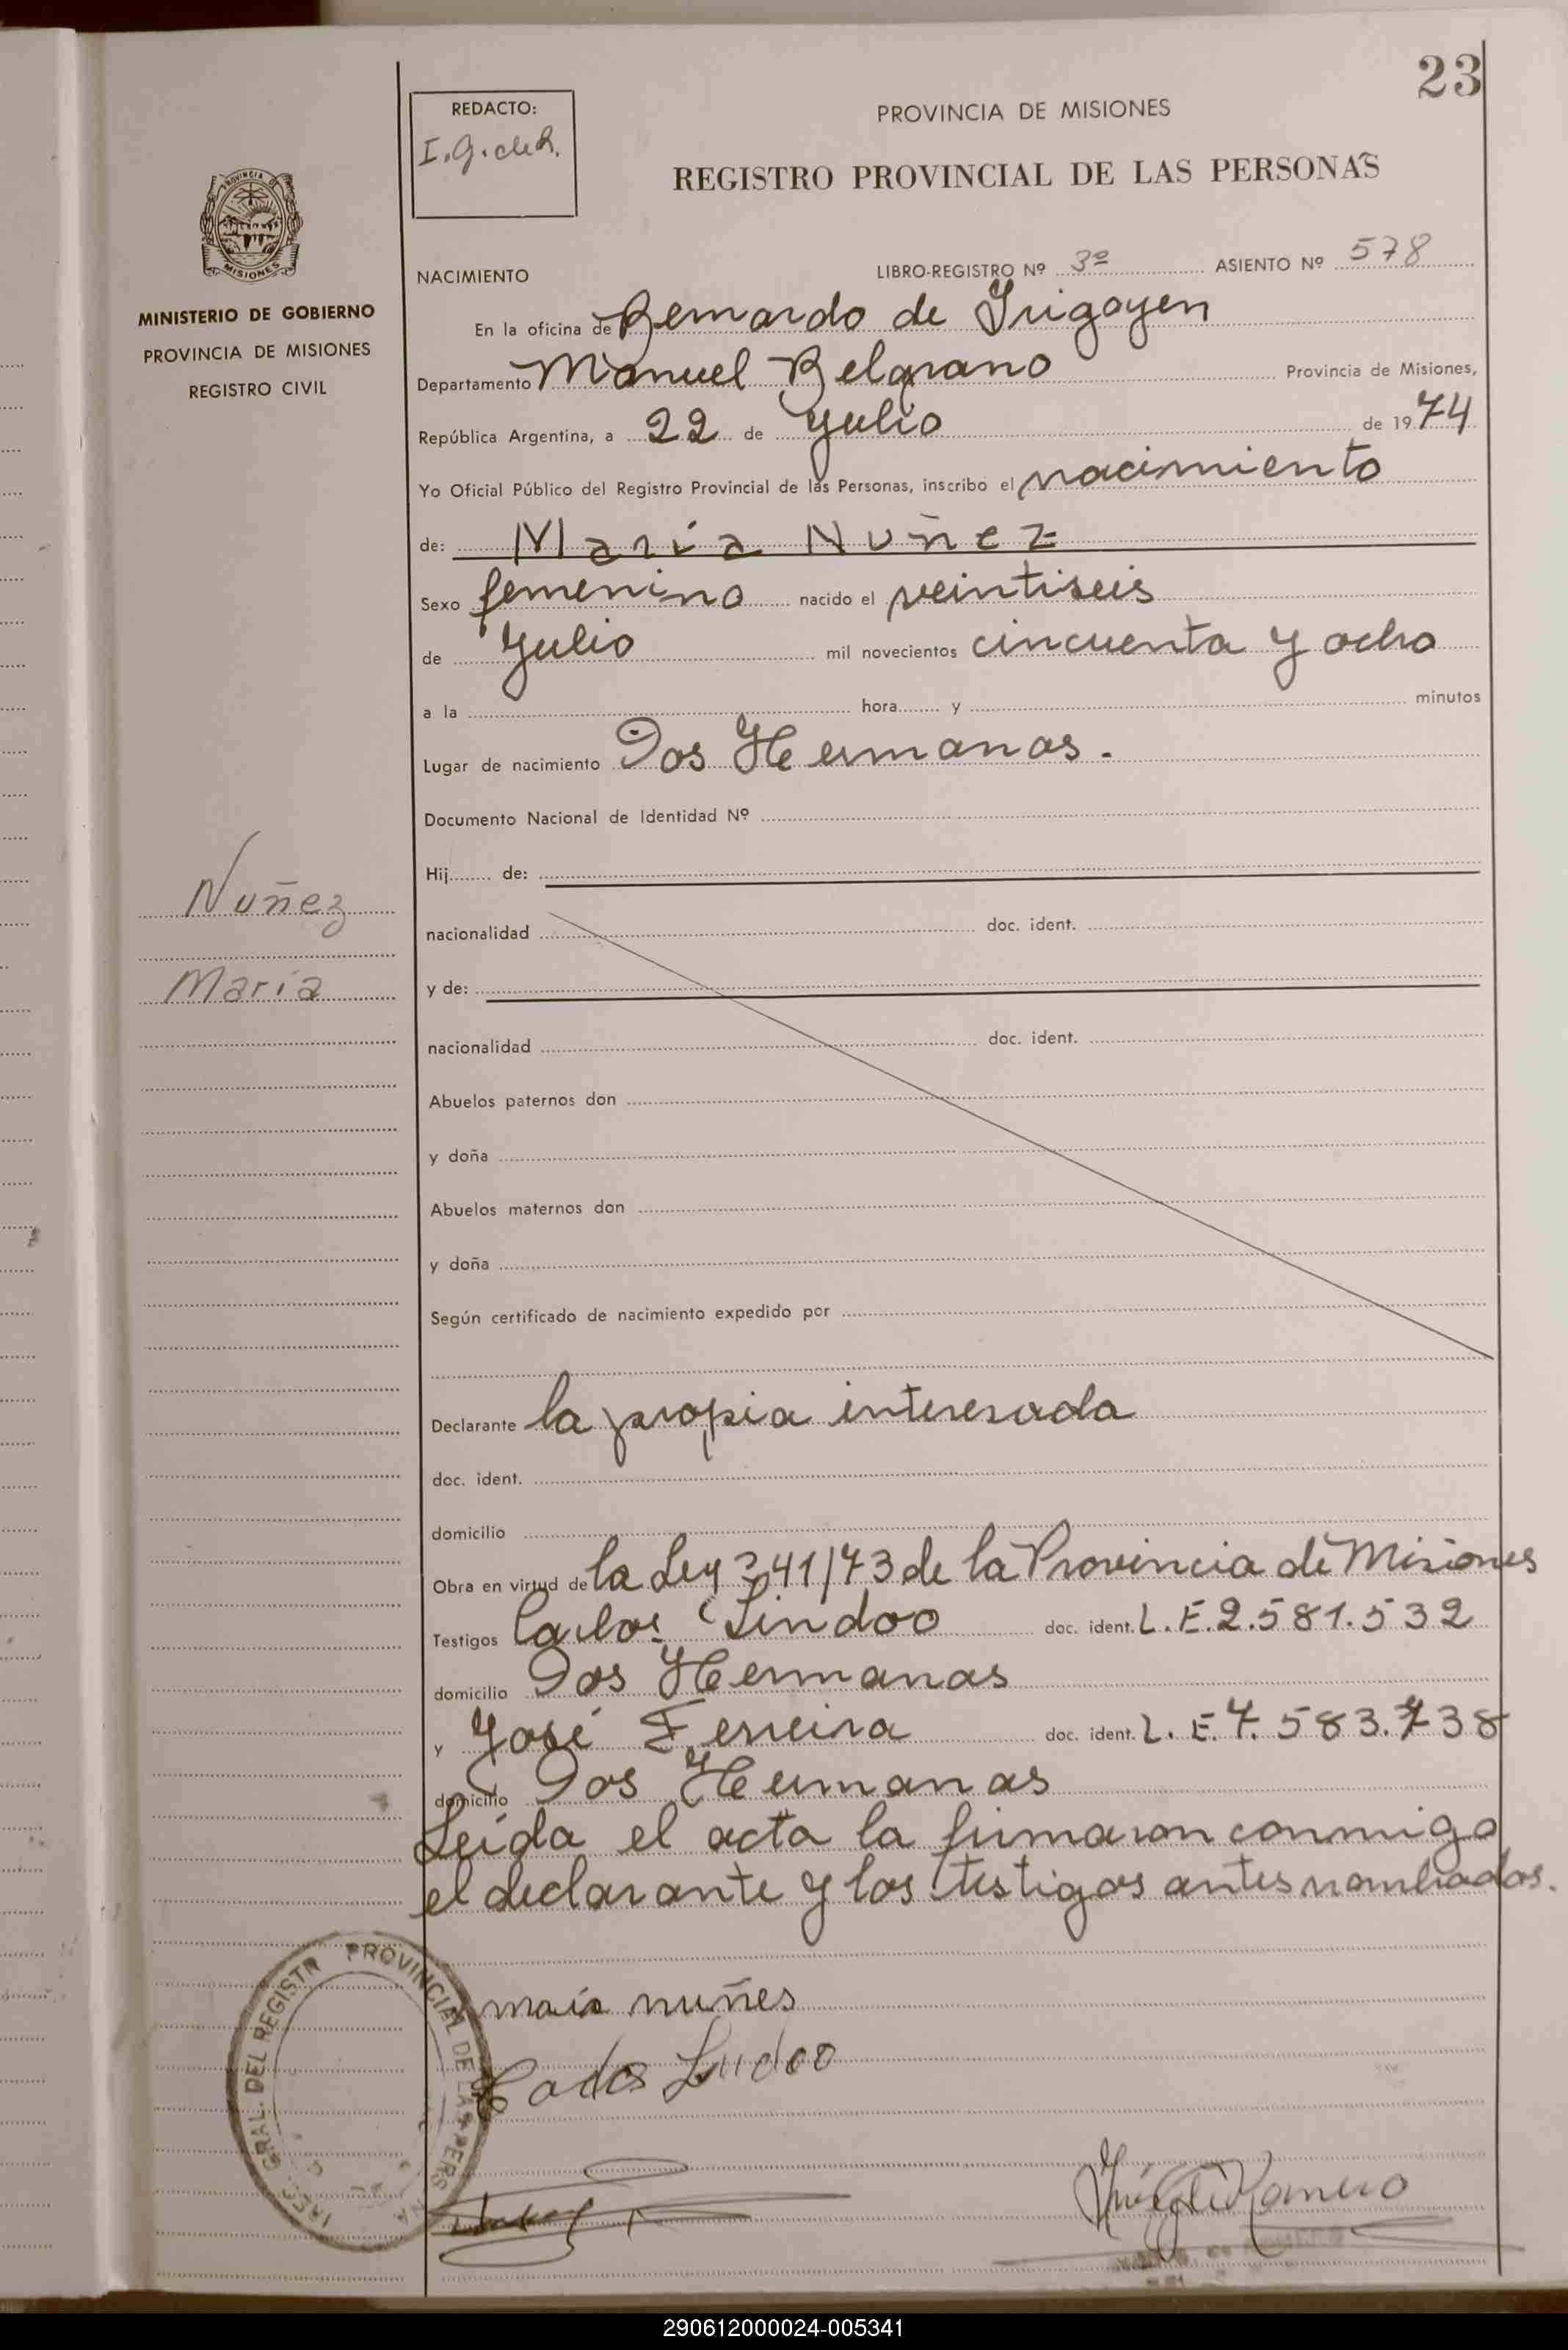 23
REDACTO:
I.G.deR.
PROVINCIA DE MISIONES
REGISTRO PROVINCIAL DE LAS PERSONAS
PROVINCIA DE
MISIONES
MINISTERIO DE GOBIERNO
PROVINCIA DE MISIONES
REGISTRO CIVIL
NACIMIENTO
LIBRO-REGISTRO Nº 3º ASIENTO Nº 578
En la oficina de Bernardo de Irigoyen
Departamento Manuel Belgrano Provincia de Misiones,
República Argentina, a 22 de Julio de 1974
Yo Oficial Público del Registro Provincial de las Personas, inscribo el nacimiento
de: María Nuñez
Sexo femenino nacido el veintiseis
de Julio mil novecientos cincuenta y ocho
a la hora y minutos
Lugar de nacimiento Dos Hermanas.
Documento Nacional de Identidad Nº
Hij de:
Nuñez
nacionalidad doc. ident.
María
y de:
nacionalidad doc. ident.
Abuelos paternos don
y doña
Abuelos maternos don
y doña
Según certificado de nacimiento expedido por
Declarante la propia interesada
doc. ident.
domicilio
Obra en virtud de la Ley 341/73 de la Provincia de Misiones
Testigos Carlos Lindoo doc. ident. L.E.2.581.532
domicilio Dos Hermanas
y José Ferreira doc. ident. L.E.7.583.738
domicilio Dos Hermanas
Leída el acta la firmaron conmigo
el declarante y los testigos antes nombrados.
GRAL. DEL REGISTR PROVINCIAL DE LAS PERS
maria nuñes
Carlos
Romero
290612000024-005341